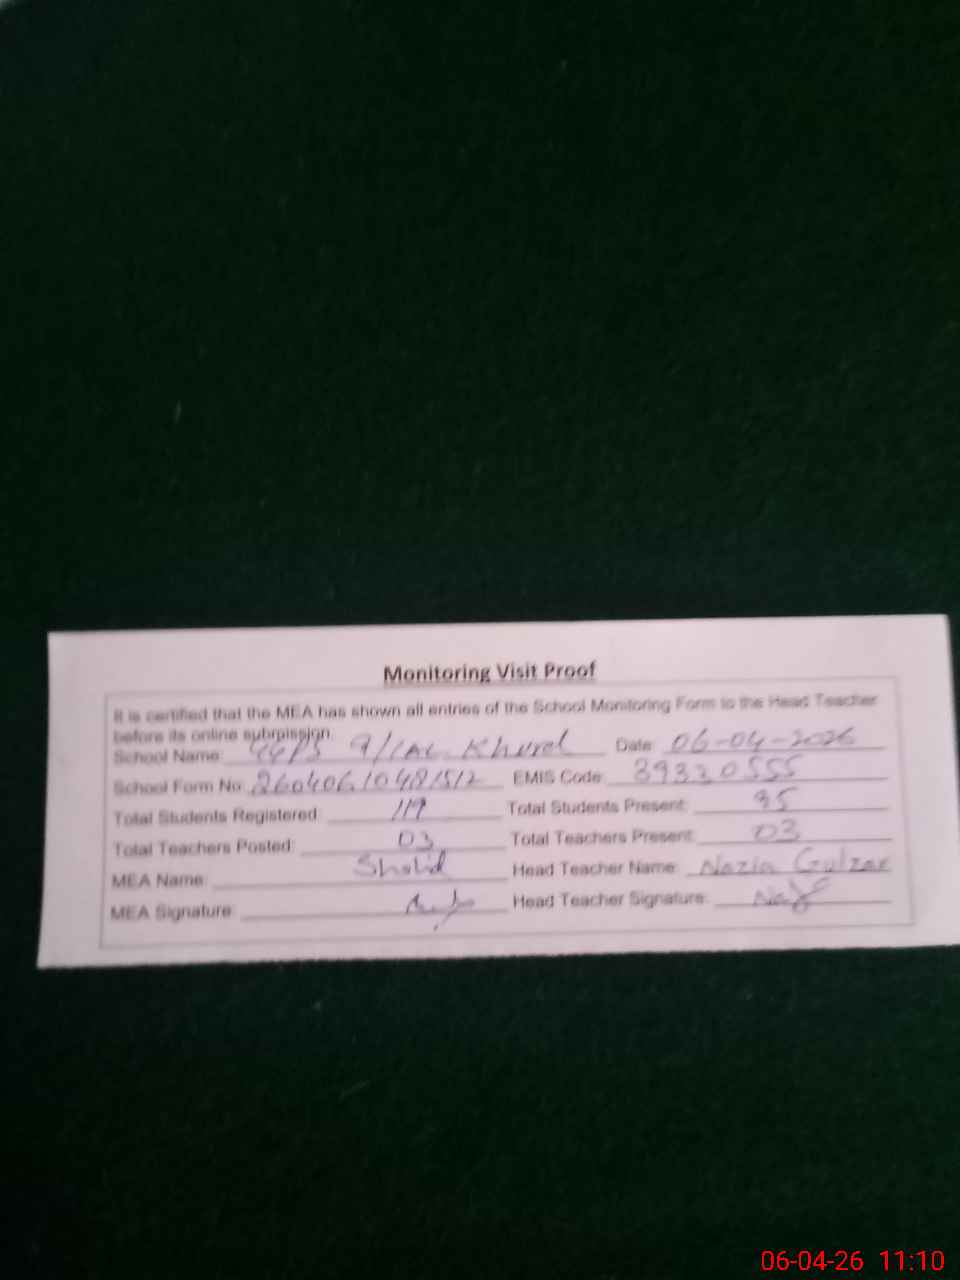 Monitoring Visit Proof
It is certified that the MEA has shown all entries of the School Monitoring Form to the Head Teacher
before its online submission.
School Name: Khurd Date: 06-04-2026
School Form No: EMIS Code: 39330555
Total Students Registered: 119 Total Students Present:
Total Teachers Posted: 03 Total Teachers Present: 03
MEA Name: Head Teacher Name: Nazia Gulzar
MEA Signature: Head Teacher Signature:
06-04-26 11:10